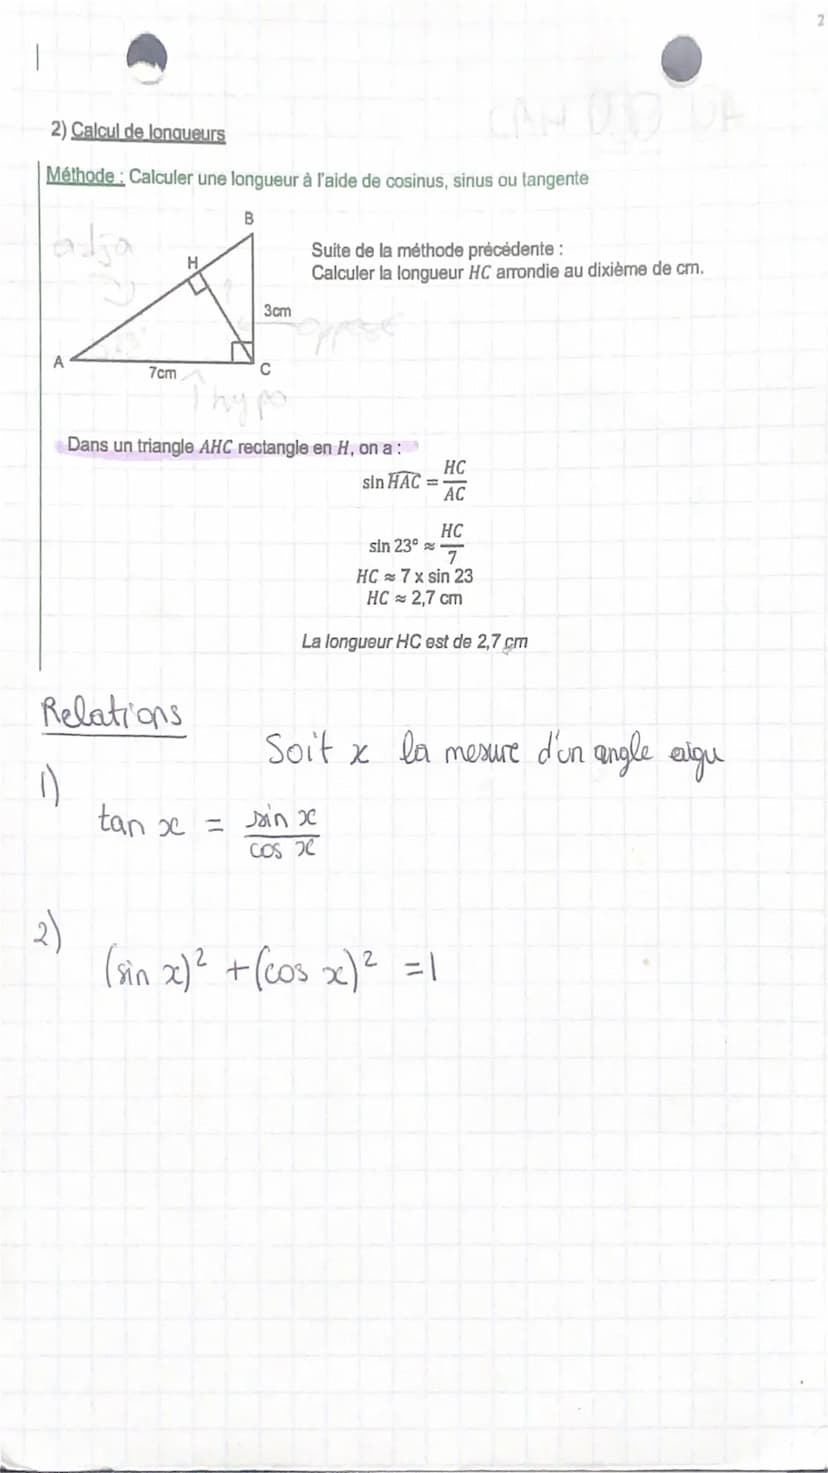 2
2) Calcul de longueurs
Méthode : Calculer une longueur à l'aide de cosinus, sinus ou tangente
adja
B
H
Suite de la méthode précédente :
Calculer la longueur HC arrondie au dixième de cm.
3cm
opposé
A
7cm
C
hypo
Dans un triangle AHC rectangle en H, on a :
sin HAC = HC/AC
sin 23° ≈ HC/7
HC ≈ 7 x sin 23
HC ≈ 2,7 cm
La longueur HC est de 2,7 cm
Relations
Soit x la mesure d'un angle aigu
1)
tan x = sin x / cos x
2)
(sin x)² + (cos x)² = 1